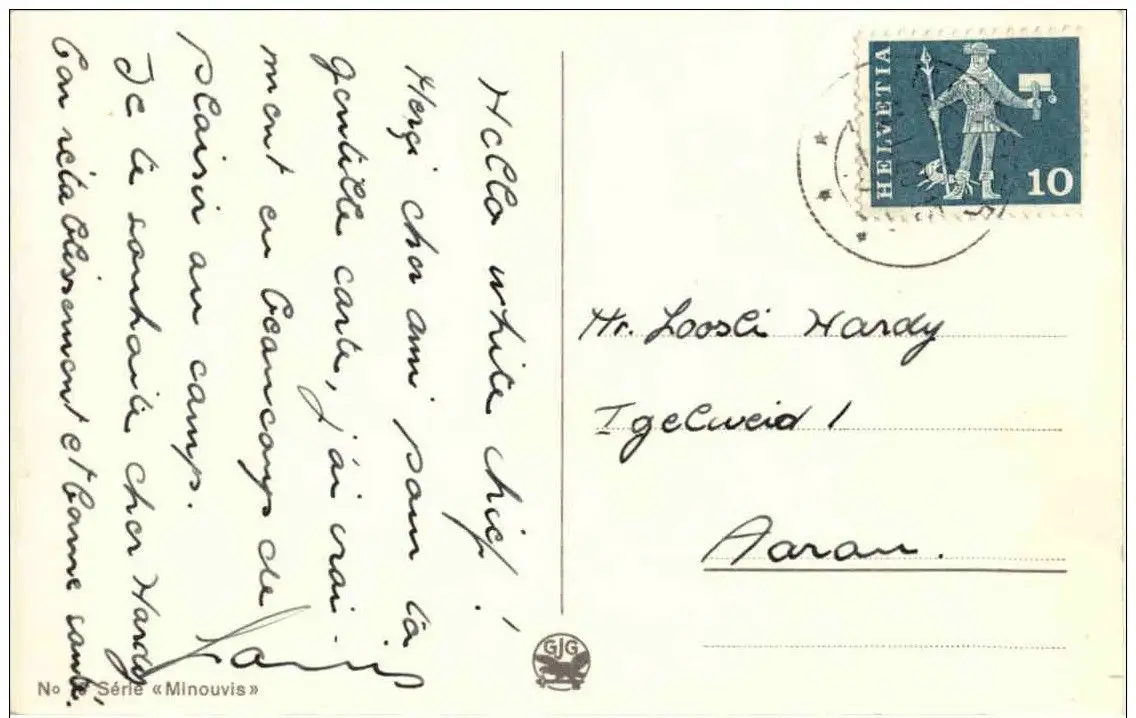 Hello white chief!
Merçi cher ami pour la
gentille carte, j'ai vrai-
ment eu beaucoup de
plaisir au camp.
Je te souhaite cher Hardy
bon rétablissement et bonne santé.
HELVETIA
10
Hr. Loosli Hardy
Igelweid 1
Aarau.
GJG
No Série «Minouvis»